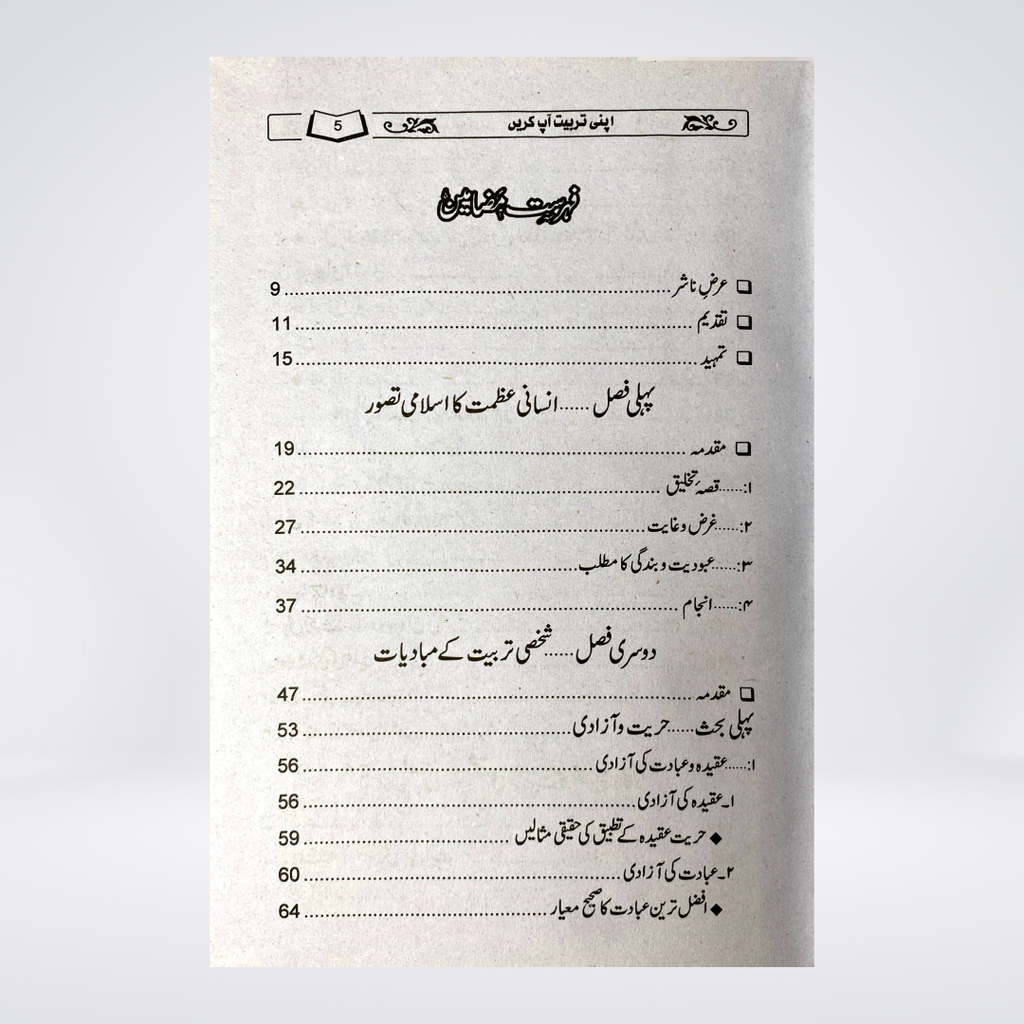 اپنی تربیت آپ کریں 5
فہرست مضامین
❑ عرضِ ناشر ........ 9
❑ تقدیم ........ 11
❑ تمہید ........ 15
پہلی فصل ...... انسانی عظمت کا اسلامی تصور
❑ مقدمہ ........ 19
۱: ...... قصۂ تخلیق ........ 22
۲: ...... غرض و غایت ........ 27
۳: ...... عبودیت و بندگی کا مطلب ........ 34
۴: ...... انجام ........ 37
دوسری فصل ...... شخصی تربیت کے مبادیات
❑ مقدمہ ........ 47
پہلی بحث ...... حریت و آزادی ........ 53
۱: ...... عقیدہ و عبادت کی آزادی ........ 56
۱۔ عقیدہ کی آزادی ........ 56
◆ حریت عقیدہ کے تطبیق کی حقیقی مثالیں ........ 59
۲۔ عبادت کی آزادی ........ 60
◆ افضل ترین عبادت کا صحیح معیار ........ 64